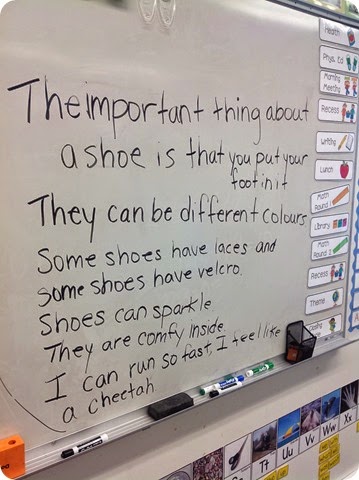 The important thing about
a shoe is that you put your
foot in it
They can be different colours
Some shoes have laces and
some shoes have velcro.
Shoes can sparkle
They are comfy inside
I can run so fast I feel like
a cheetah
Health
Phys. Ed
Morning
Meeting
Recess
Writing
Lunch
Math
Round 1
Library
Math
Round 2
Recess
Theme
Tt
Uu
Vv
Ww
Xx